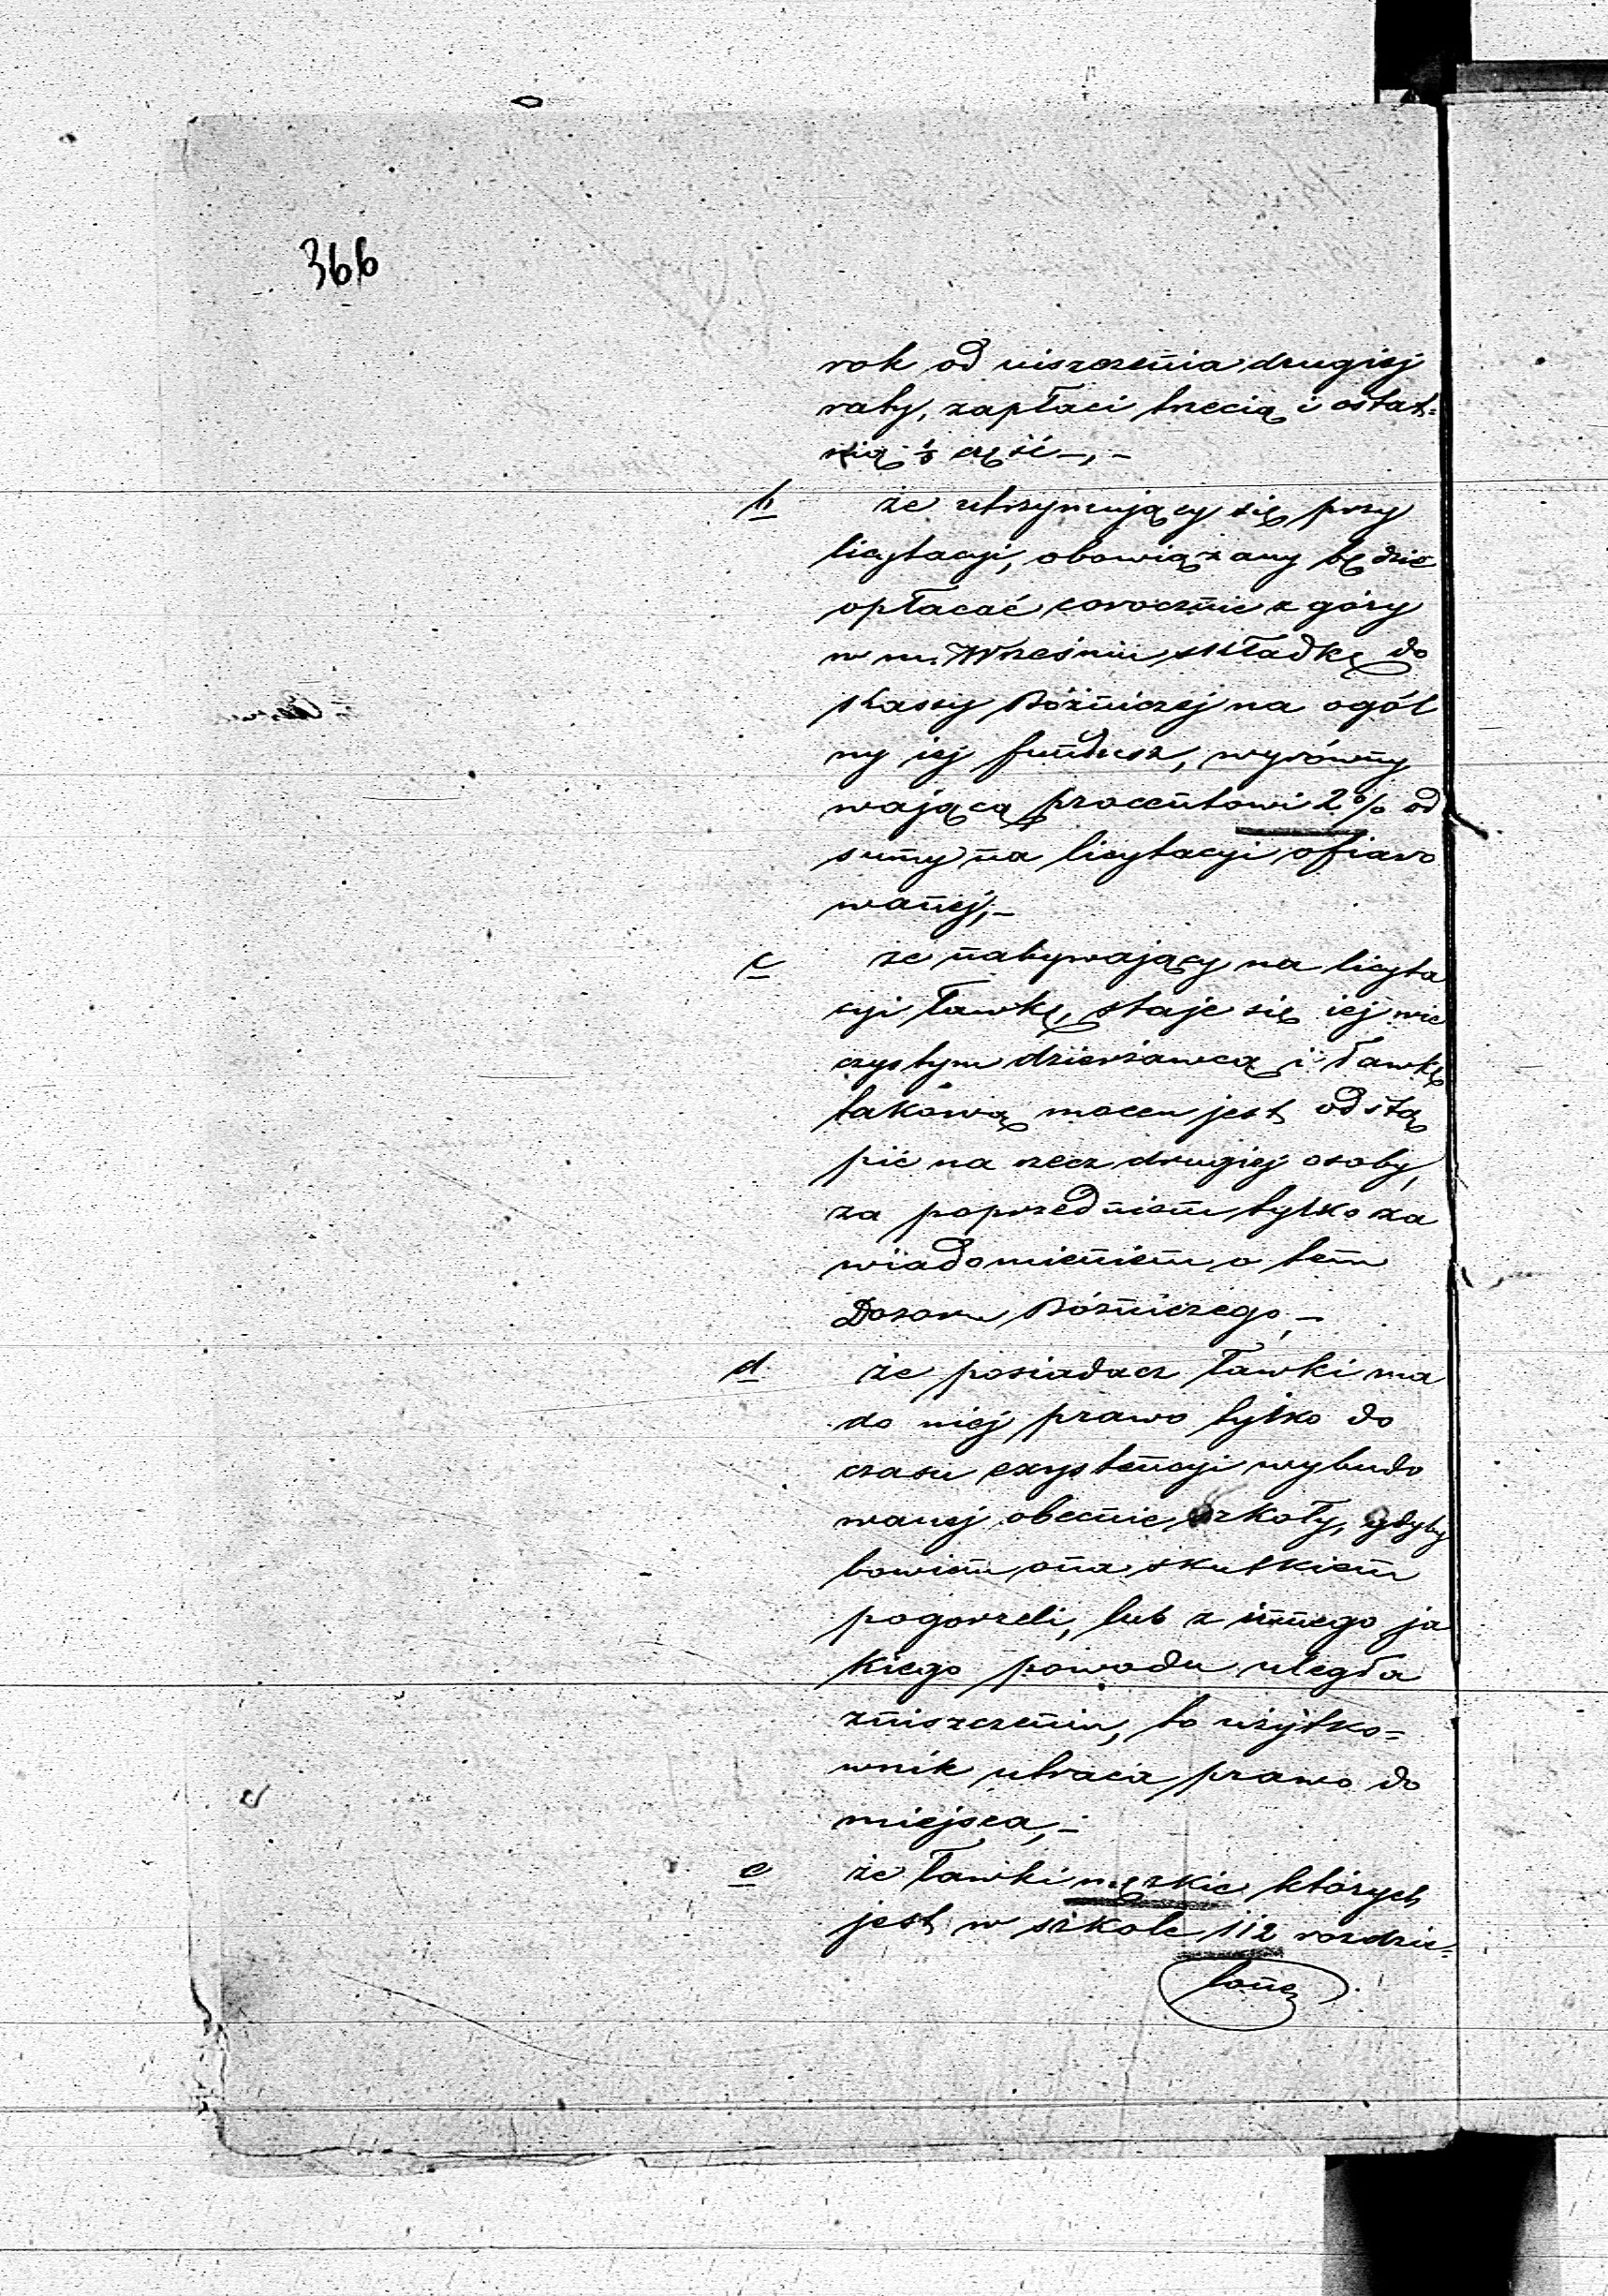 366
rok od uiszczenia drugiej
raty, zapłaci trzecią i ostat=
nią ⅓ część -,-
b że utrzymujący się przy
licytacyi, obowiązany będzie
opłacać corocznie z góry
w m. Wrześniu składkę do
kassy Bóżniczej na ogól
ny iej fundusz, wyrówny
wającą procentowi 2% od
sumy na licytacyi ofiaro
wanej,-
c że nabywający na licyta
cyi ławkę, staje się iej wie
czystym dzierżawcą i ławkę
takową mocen jest odstą
pić na rzecz drugiej osoby,
za poprzedniem tylko za
wiadomieniem o tem
Dozoru Bóżniczego,-
d że posiadacz ławki ma
do niej prawo tylko do
czasu exystencyi wybudo
wanej obecnie szkoły, gdyby
bowiem ona skutkiem
pogorzeli, lub z innego ja
kiego powodu uległa
zniszczeniu, to użytko=
wnik utraca prawo do
miejsca,-
e że ławki męzkie których
jest w szkole 112 rozdzie=
lone